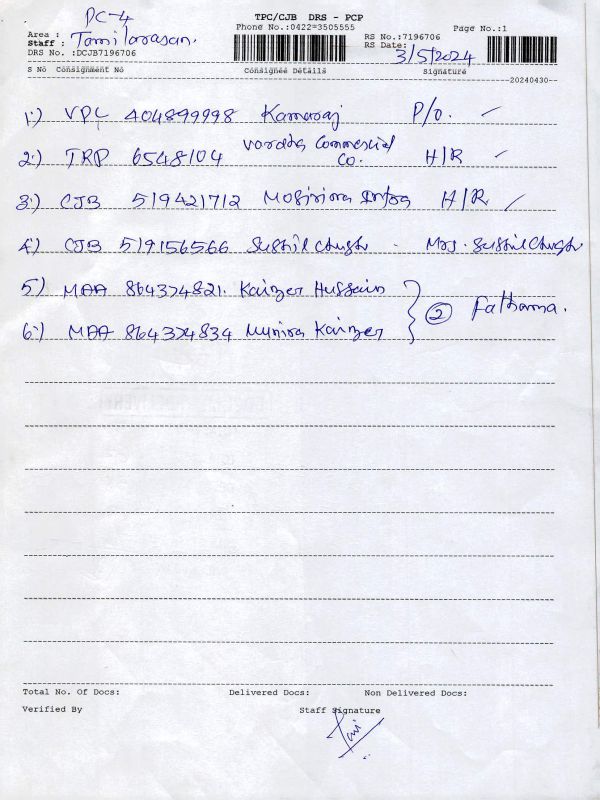 TPC/CJB DRS - PCP
Phone No.:0422-3505555
Page No.:1
Area : PC-4
Staff : Tamilarasan.
RS No.:7196706
DRS No. :DCJB7196706
RS Date: 3/5/2024
S No Consignment No Consignee Details Signature
20240430
1) VPL 404899998 Kamaraj P/o.
2) TRP 6548104 Varada Commercial Co. H/R
3) CJB 519421712 Infra H/R
4) CJB 519156566 Sushil - Mrs. Sushil
5) MAA 864374821. Kaizer Hussain
6) MAA 864374834 Munira Kaizer
2 Fathama.
Total No. Of Docs: Delivered Docs: Non Delivered Docs:
Verified By Staff Signature